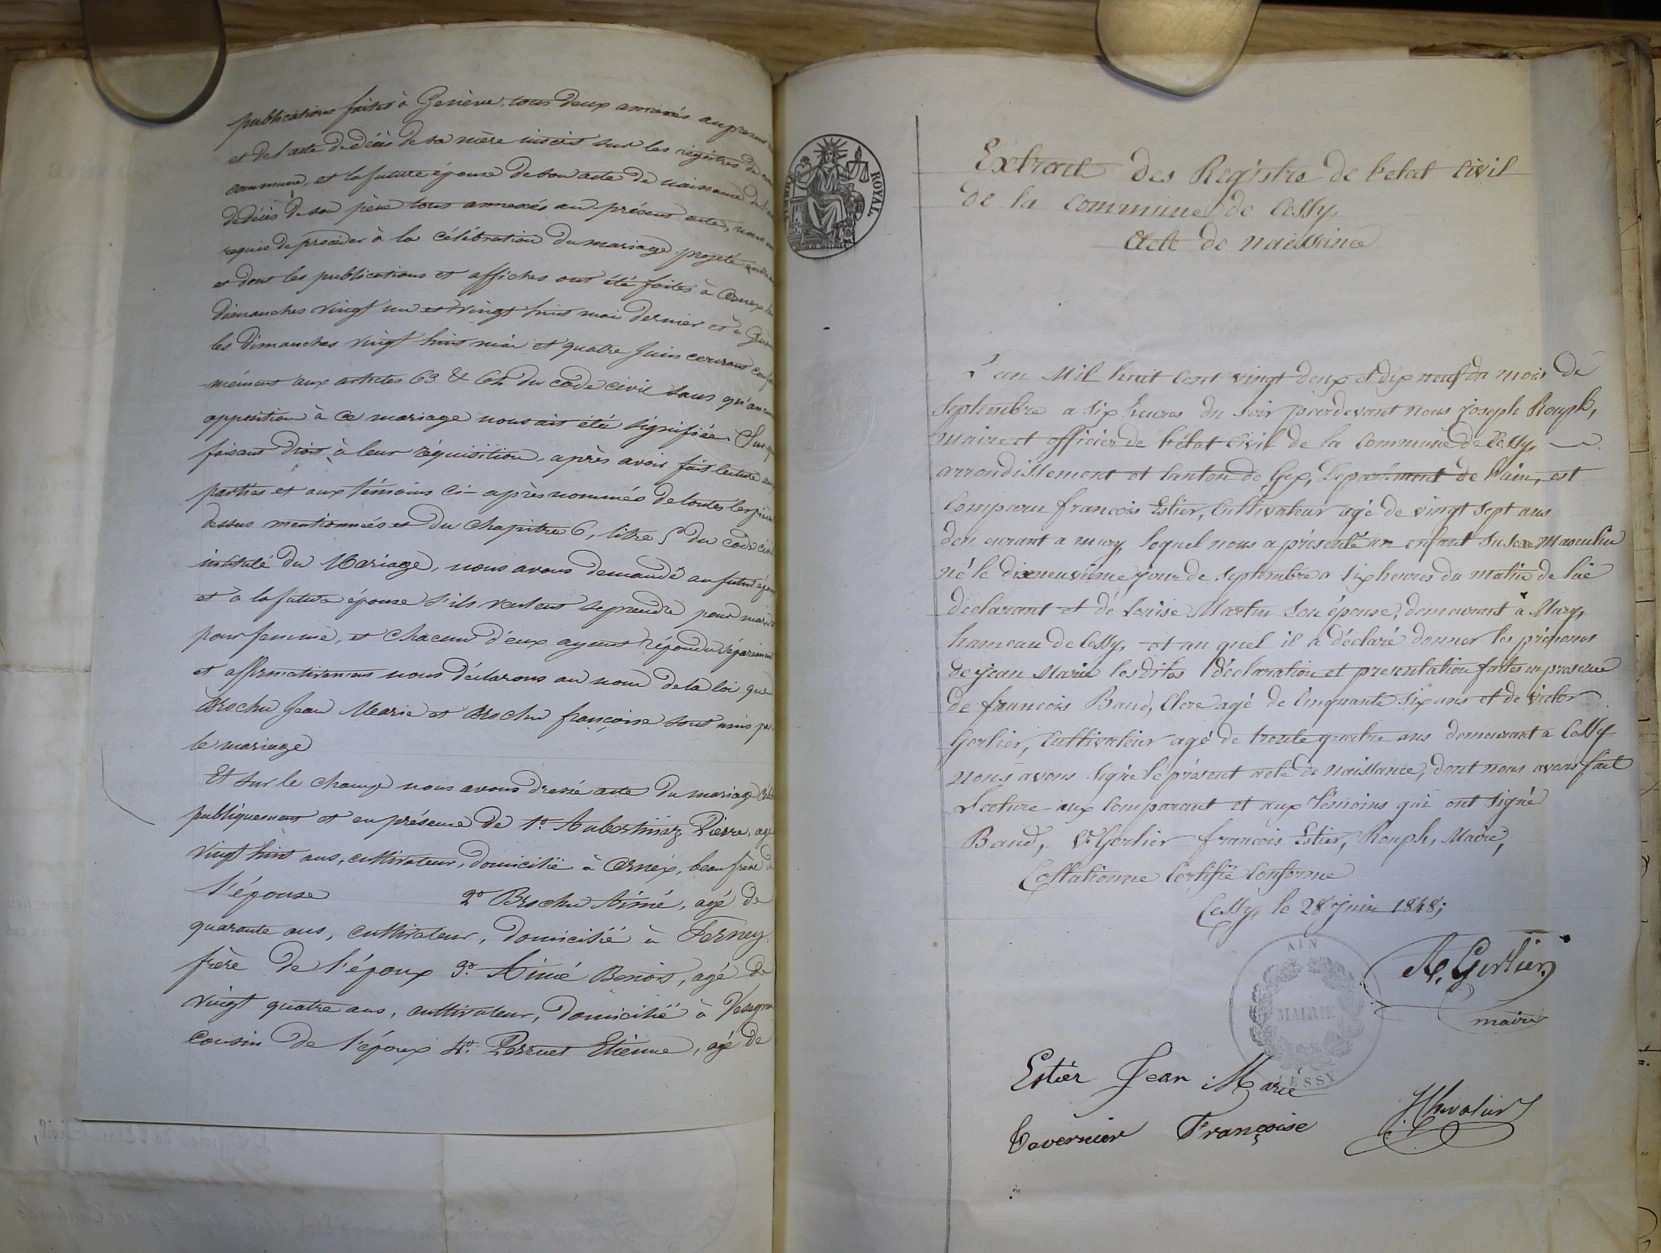 publications faites à Genève, tous deux annexés au présent
et de l'acte de décès de sa mère inscrit sur les registres de
commune, et la future épouse de son acte de naissance
de décès de son père tous annexés au présent acte, nous
requis de procéder à la célébration du mariage projeté
et dont les publications et affiches ont été faites à Ornex
dimanches vingt un et vingt huit mai dernier et à
les dimanches vingt huit mai et quatre Juin courant
mément aux articles 63 & 64 du code civil sans qu'aucune
opposition à ce mariage nous ait été signifiée.
faisant droit à leur réquisition, après avoir fait lecture aux
parties et aux témoins ci-après nommés de toutes les pièces
dessus mentionnées et du chapitre 6, titre 5 du code civil
intitulé du Mariage, nous avons demandé au futur époux
et à la future épouse s'ils veulent se prendre pour mari
pour femme, et chacun d'eux ayant répondu séparément
et affirmativement nous déclarons au nom de la loi que
Brochu Jean Marie et Brochu françoise sont unis par
le mariage
Et sur le champ nous avons dressé acte du mariage
publiquement et en présence de 1° Pierre, agé
vingt huit ans, cultivateur, domicilié à Ornex, beau frère de
l'épouse 2° Brochu Aimé, agé de
quarante ans, cultivateur, domicilié à Ferney
frère de l'époux 3° Aimé Benoit, agé de
vingt quatre ans, cultivateur, domicilié à
Cousin de l'époux 4° Perruet Etienne, agé de
ROYAL
Extrait des Registre de l'etat Civil
de la Commune de Cessy.
Acte de naissance
L'an Mil huit Cent vingt deux et dix neuf du mois de
Septembre a Six heures du Soir pardevant nous joseph Rouph,
Maire et officier de l'état Civil de la Commune de Cessy,
arrondissement et Canton de Gex, Département de l'ain, est
Comparu françois Estier, Cultivateur agé de vingt Sept ans
demeurant a mury, lequel nous a présenté un enfant du Sexe Masculin
né le dixneuvième jour de Septembre a Six heures du matin de lui
déclarant et de Louise Martin Son épouse, demeurant à Mury,
hameau de Cessy, et au quel il a déclaré donner les prénoms
de jean Marie lesdites déclaration et presentation faites en presence
de françois Baud, Clerc agé de Cinquante Six ans et de victor
Gerlier, Cultivateur agé de trente quatre ans demeurant a Cessy
nous avons Signé le présent acte de naissance, dont nous avons fait
Lecture aux Comparant et aux Témoins qui ont Signé
Baud, Vr Gerlier françois Estier, Rouph, Maire,
Collationné Certifié Conforme
Cessy, le 28 Juin 1848;
A. Gerlier
maire
AIN
MAIRIE
CESSY
Estier Jean Marie
Tavernier Françoise JChevalier